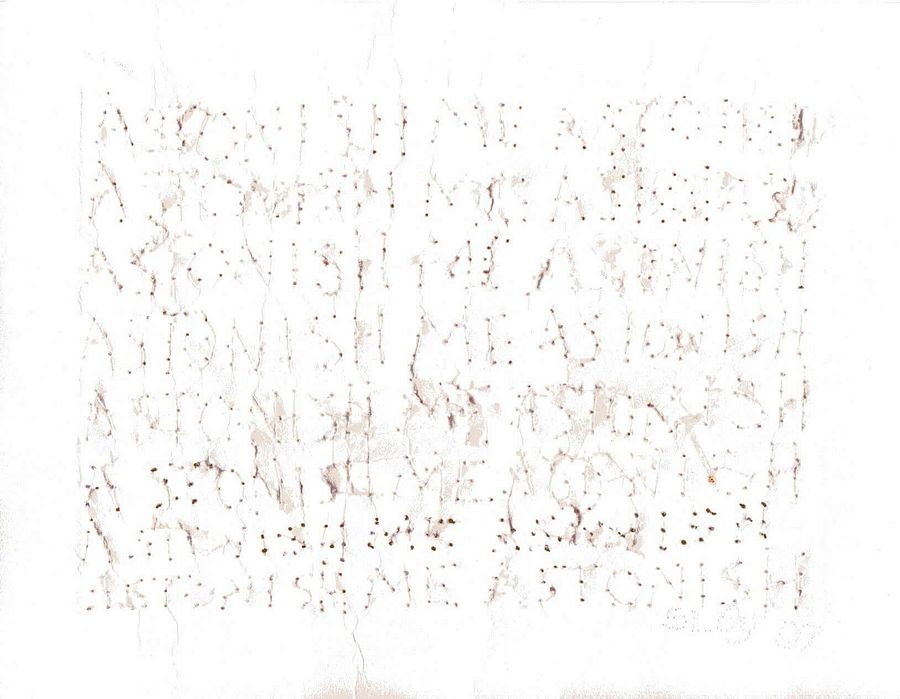 ASTONISH ME ASTONISH
ASTONISH ME ASTONISH
ASTONISH ME ASTONISH
ASTONISH ME ASTONISH
ASTONISH ME ASTONISH
ASTONISH ME ASTONISH
ASTONISH ME ASTONISH
ASTONISH ME ASTONISH